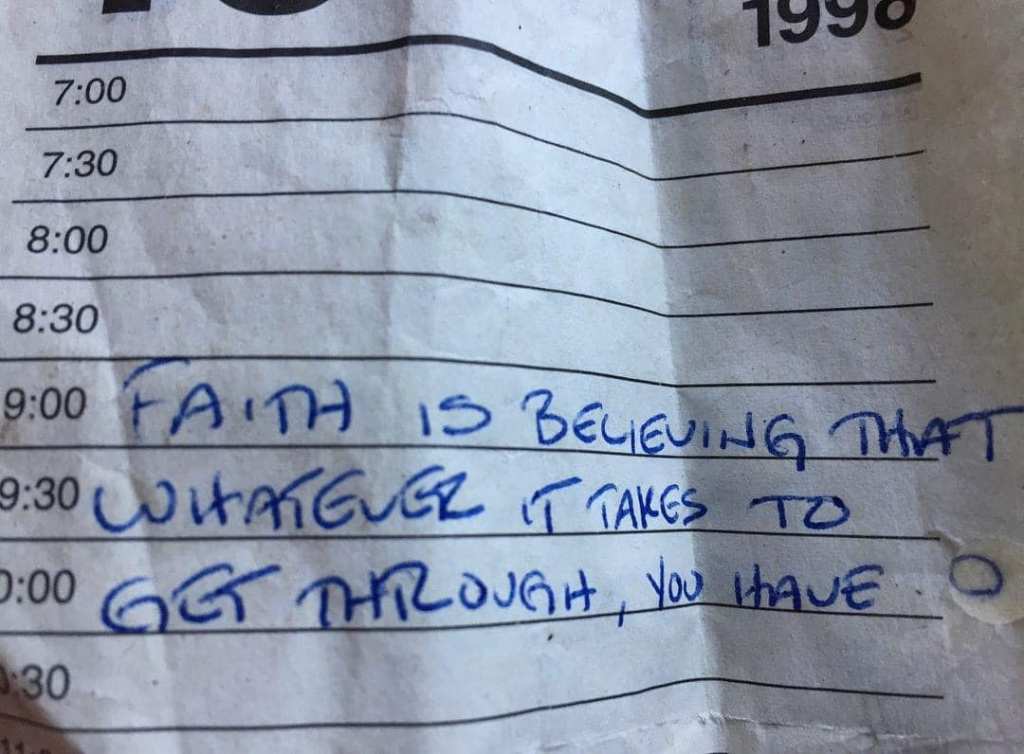 1998
7:00
7:30
8:00
8:30
9:00 FAITH IS BELIEVING THAT
9:30 WHATEVER IT TAKES TO
0:00 GET THROUGH, YOU HAVE.
:30